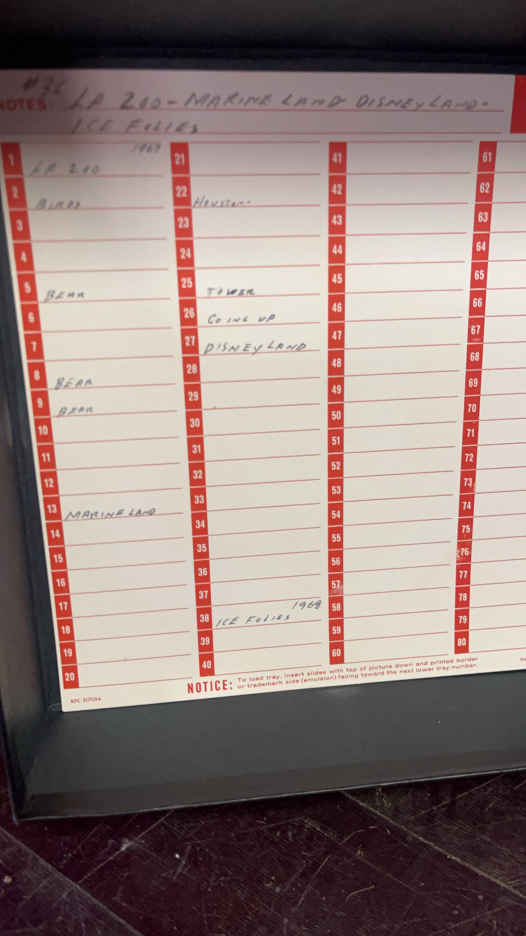 #36
NOTES LA ZOO - MARINE LAND DISNEYLAND -
ICE FOLIES
1969
1 LA ZOO
2 BIRDS
3
4
5 BEAR
6
7
8 BEAR
9 BEAR
10
11
12
13 MARINE LAND
14
15
16
17
18
19
20
21
22 Houston
23
24
25 TOWER
26 GOING UP
27 DISNEYLAND
28
29
30
31
32
33
34
35
36
37
1968
38 ICE FOLIES
39
40
41
42
43
44
45
46
47
48
49
50
51
52
53
54
55
56
57
58
59
60
61
62
63
64
65
66
67
68
69
70
71
72
73
74
75
76
77
78
79
80
NOTICE: To load tray, insert slides with top of picture down and printed border
or trademark side (emulsion) facing toward the next lower tray number.